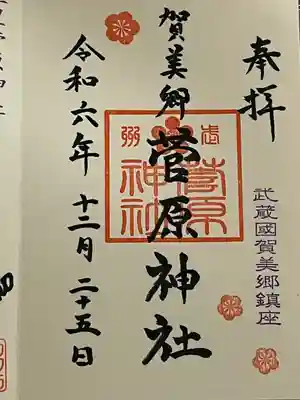 奉拝
武蔵國賀美郷鎮座
賀美郷
菅原神社
武州
菅原
神社
令和六年
十二月二十五日